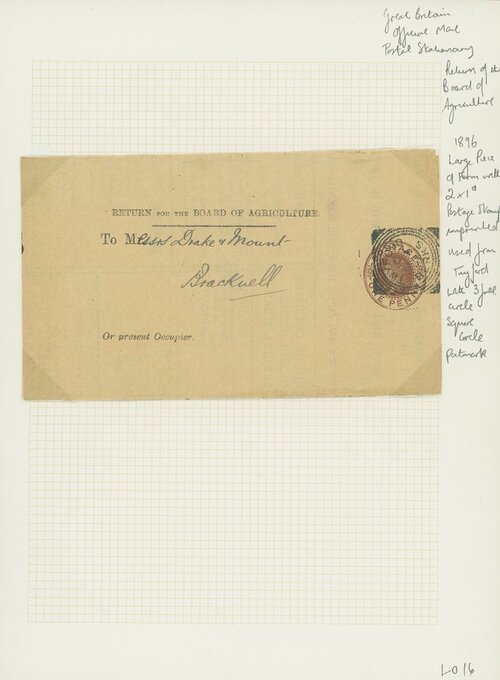 Great Britain
Official Mail
Postal Stationary
Return of the
Board of
Agriculture
1896
Large Piece
of Form with
2 x 1d
Postage Stamp
imprinted
used from
with 3 full
circle
Square
Circle
Postmark
RETURN FOR THE BOARD OF AGRICULTURE.
To Messrs Drake & Mount
Bracknell
Or present Occupier.
ONE PENNY
LO16